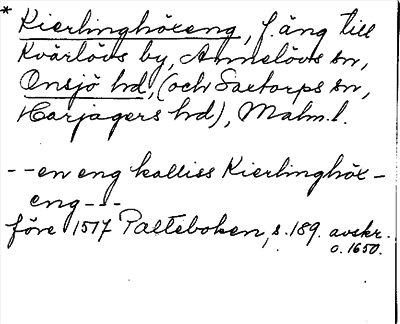 * Kierlinghöxeng, f. äng till
Kvärlövs by, Annelövs sn,
Onsjö hd, (och Saxtorps sn,
Harjagers hd), Malm. l.
--en eng kalliss Kierlinghöx-
eng---
före 1517 Palteboken, s. 189. avskr.
o. 1650.